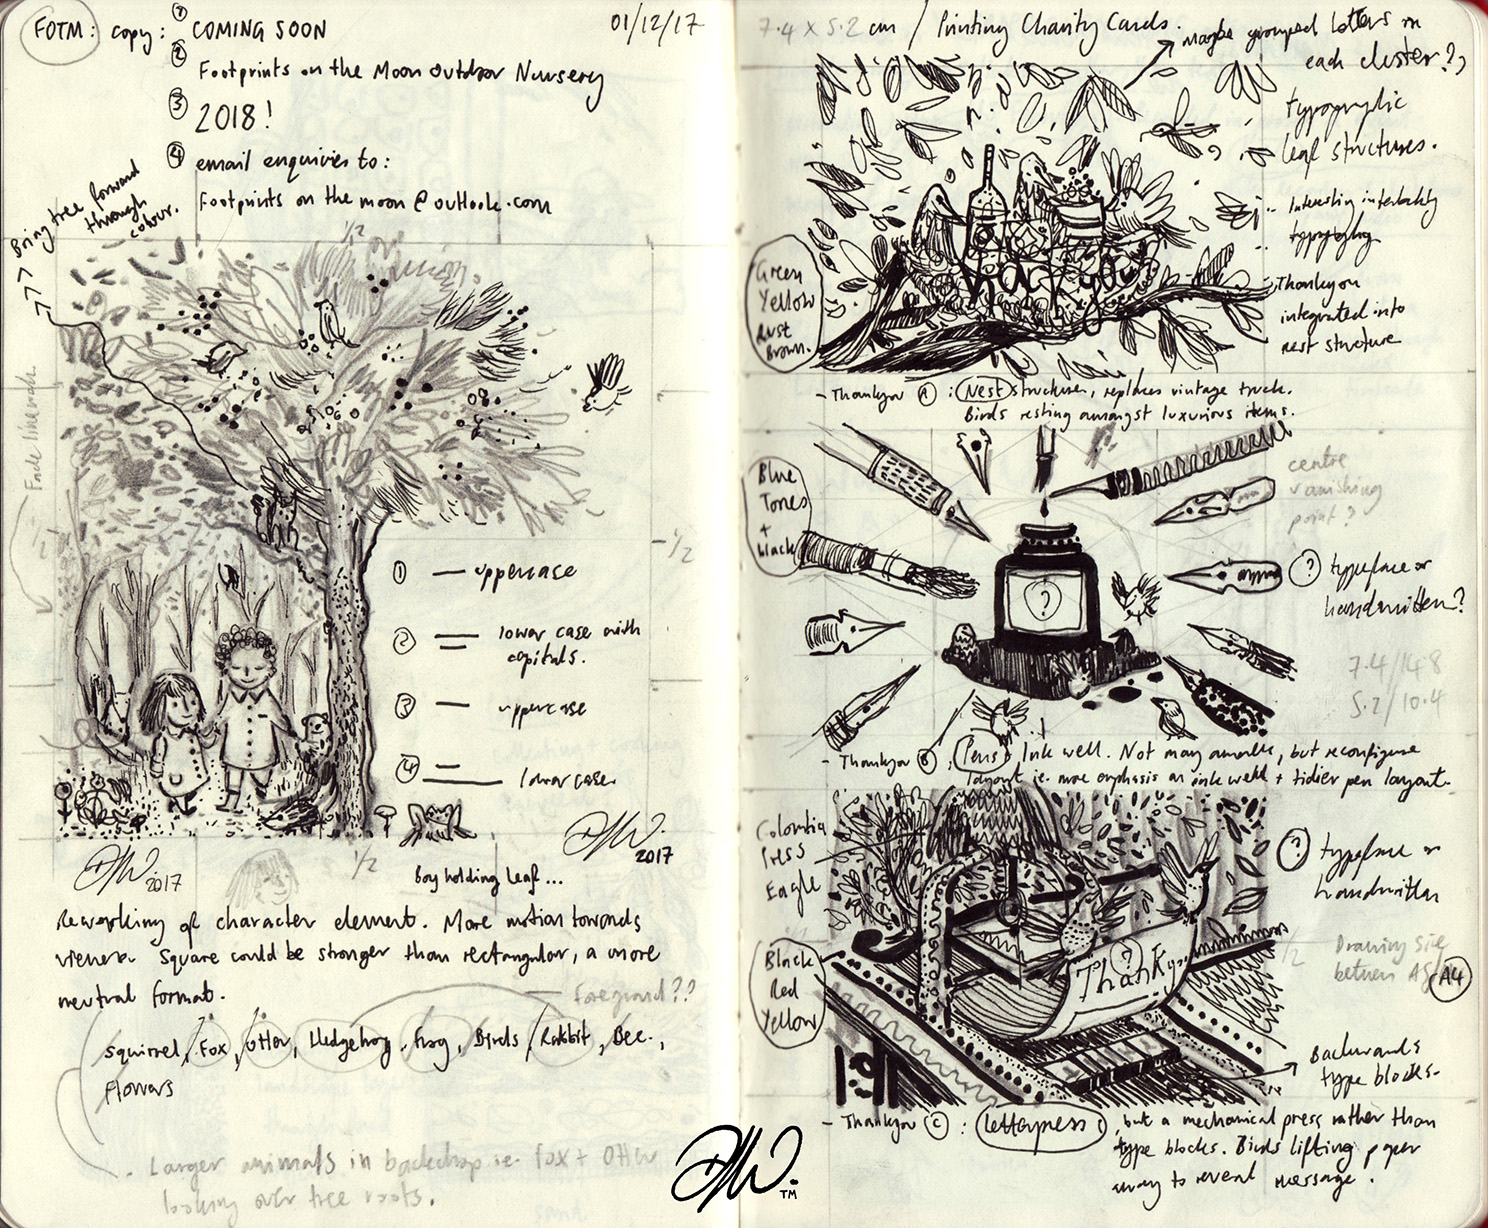 FOTM: copy: 1 COMING SOON
01/12/17
2 Footprints on the Moon Outdoor Nursery
3 2018!
4 email enquiries to:
Footprints on the moon @ outlook.com
Bring tree forward
through
colour.
1/2
Fade linework
1/2
1/2
1 — uppercase
2 = lower case with
capitals.
3 — uppercase
4 = lowercase
DHW. 2017
1/2
Boy holding leaf...
DHW. 2017
Reworking of character element. More motion towards
viewer. Square could be stronger than rectangular, a more
neutral format.
Foreground??
Squirrel, Fox, Otter, Hedgehog, Frog, Birds, Rabbit, Bee,
Flowers
Larger animals in backdrop ie. fox + otter
looking over tree roots.
DHW. TM
7.4 x 5.2 cm / Printing Charity Cards.
Maybe grouped letters in
each cluster??
typographic
leaf structures.
typography
Thankyou
integrated into
nest structure
Green
Yellow
Rust
Brown.
Thankyou
- Thankyou A: Nest structure, replaces vintage truck.
Birds resting amongst luxurious items.
Blue
Tones
+
black
centre
vanishing
point?
?
? typeface or
handwritten?
7.4/14.8
5.2/10.4
- Thankyou B: Pens + Ink well. Not many animals, but reconfigure
layout ie. more emphasis on ink well + tidier pen layout.
Colombia
Press
Eagle
? typeface or
handwritten
?
Thanky
1/2
Drawing size
between A5/A4
Black
Red
Yellow
Backwards
type blocks.
- Thankyou C: Letterpress, but a mechanical press rather than
type blocks. Birds lifting paper
away to reveal message.